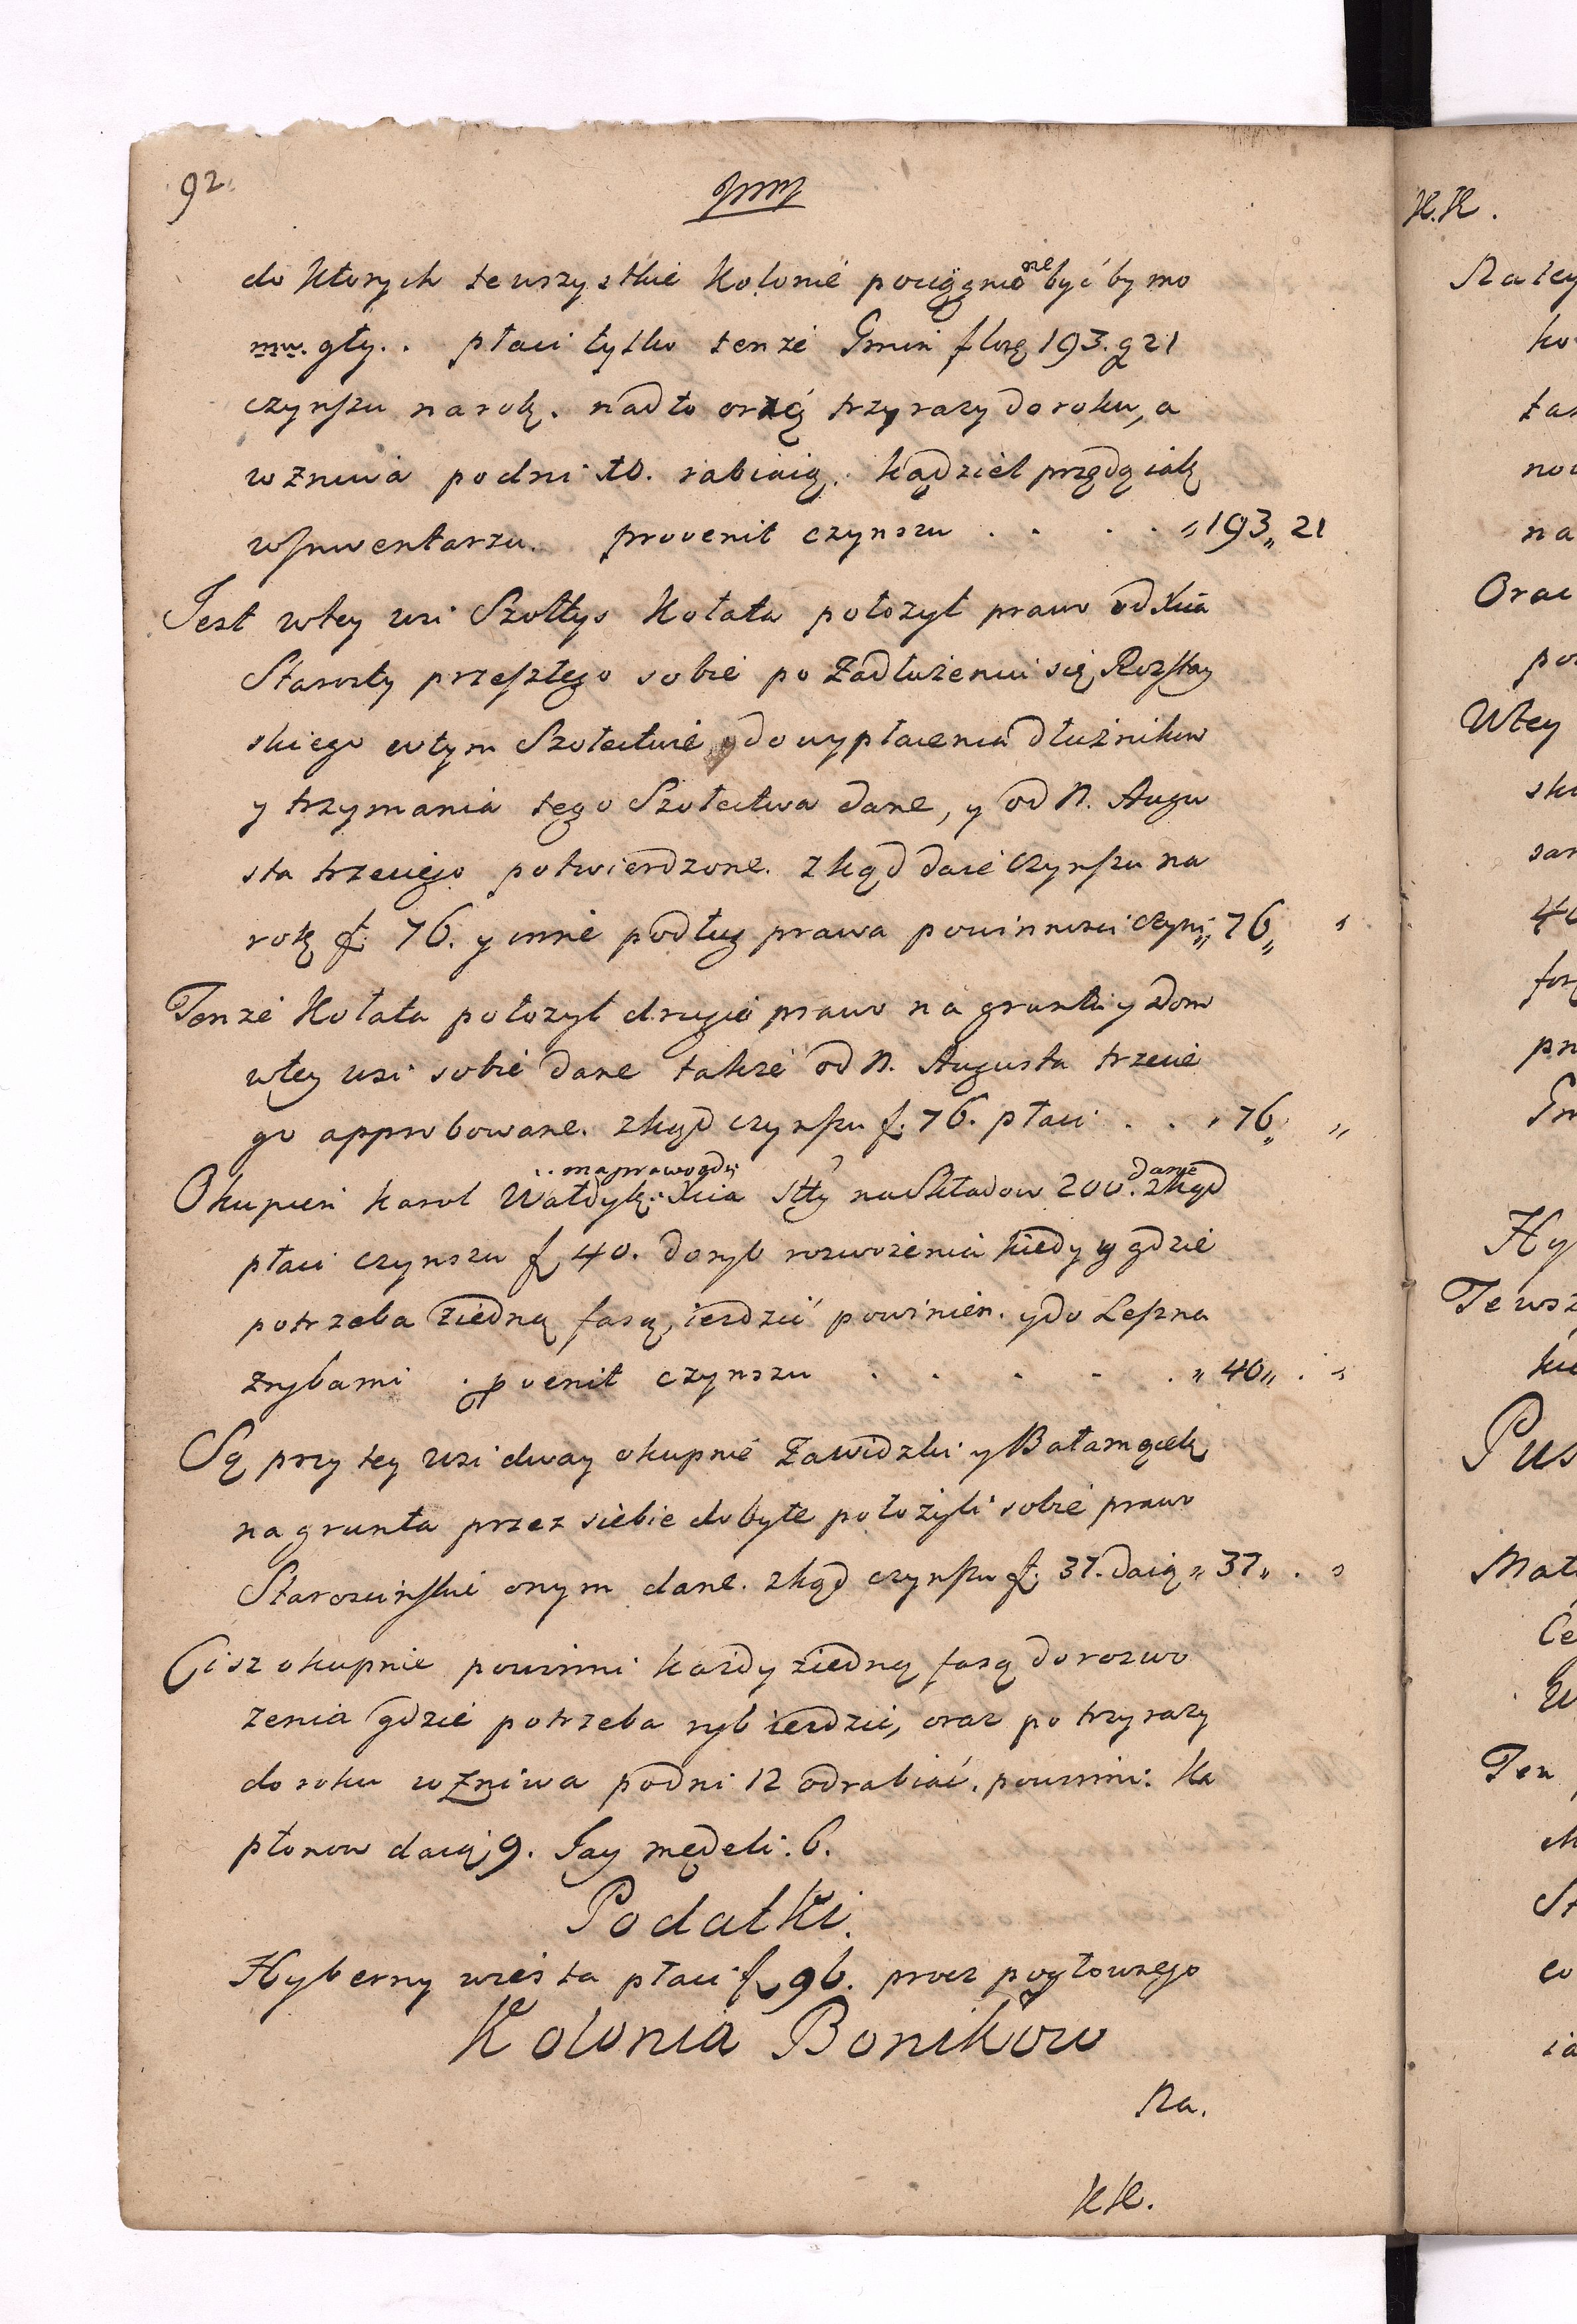 92.
do ktorych te wszystkie Kolonie pociągnione być by mo
gły.. płaci tylko tenże Gmin flor 193. g 21
czynszu na rok. nadto orzą trzy razy do roku, a
w żniwa po dni 10. rabiaią. kądziel przędą iak
w Inwentarzu. provenit czynszu . . . . „ 193 „ 21
Jest w tey wsi Szołtys Kołata położył prawo od Xcia
Starosty przeszłego sobie po zadłużeniu się Rozstay
skiego w tym Szołectwie, do wypłacenia dłużnikow
y trzymania tego Szołectwa dane, y od N. Augu
sta trzeciego potwierdzone. zkąd daie czynszu na
rok f. 76. y inne podług prawa powinności czyni „ 76 „ „
Tenże Kołata położył drugie prawo na grunta y dom
w tey wsi sobie dane także od N. Augusta trzecie
go approbowane. zkąd czynszu f. 76. płaci . . „ 76 „ „
Okupień Karol Wałdyk ma prawo od Xcia Stty na Składow 200. dane zkąd
płaci czynszu f 40. do ryb rozwożenia kiedy y gdzie
potrzeba z iedną fasą, ieździć powinien. y do Leszna
z rybami . pvenit czynszu . . . . . „ 40 „ . „
Są przy tey wsi dway okupnie Zawidzki y Bałamącek
na grunta przez siebie dobyte położyli sobie prawo
Starościńskie onym dane. zkąd czynszu f. 37. daią „ 37 „ . „
Cisz okupnie powinni każdy z iedną fasą do rozwo
żenia gdzie potrzeba ryb ieździć, oraz po trzy razy
do roku w żniwa po dni 12 odrabiać. powinni: Ka
płonow daią 9. Jay mędeli: 6.
Podatki.
Hyberny wieś ta płaci f 96. procz pogłownego
Kolonia Bonikow
Na.
KK.
K.K.